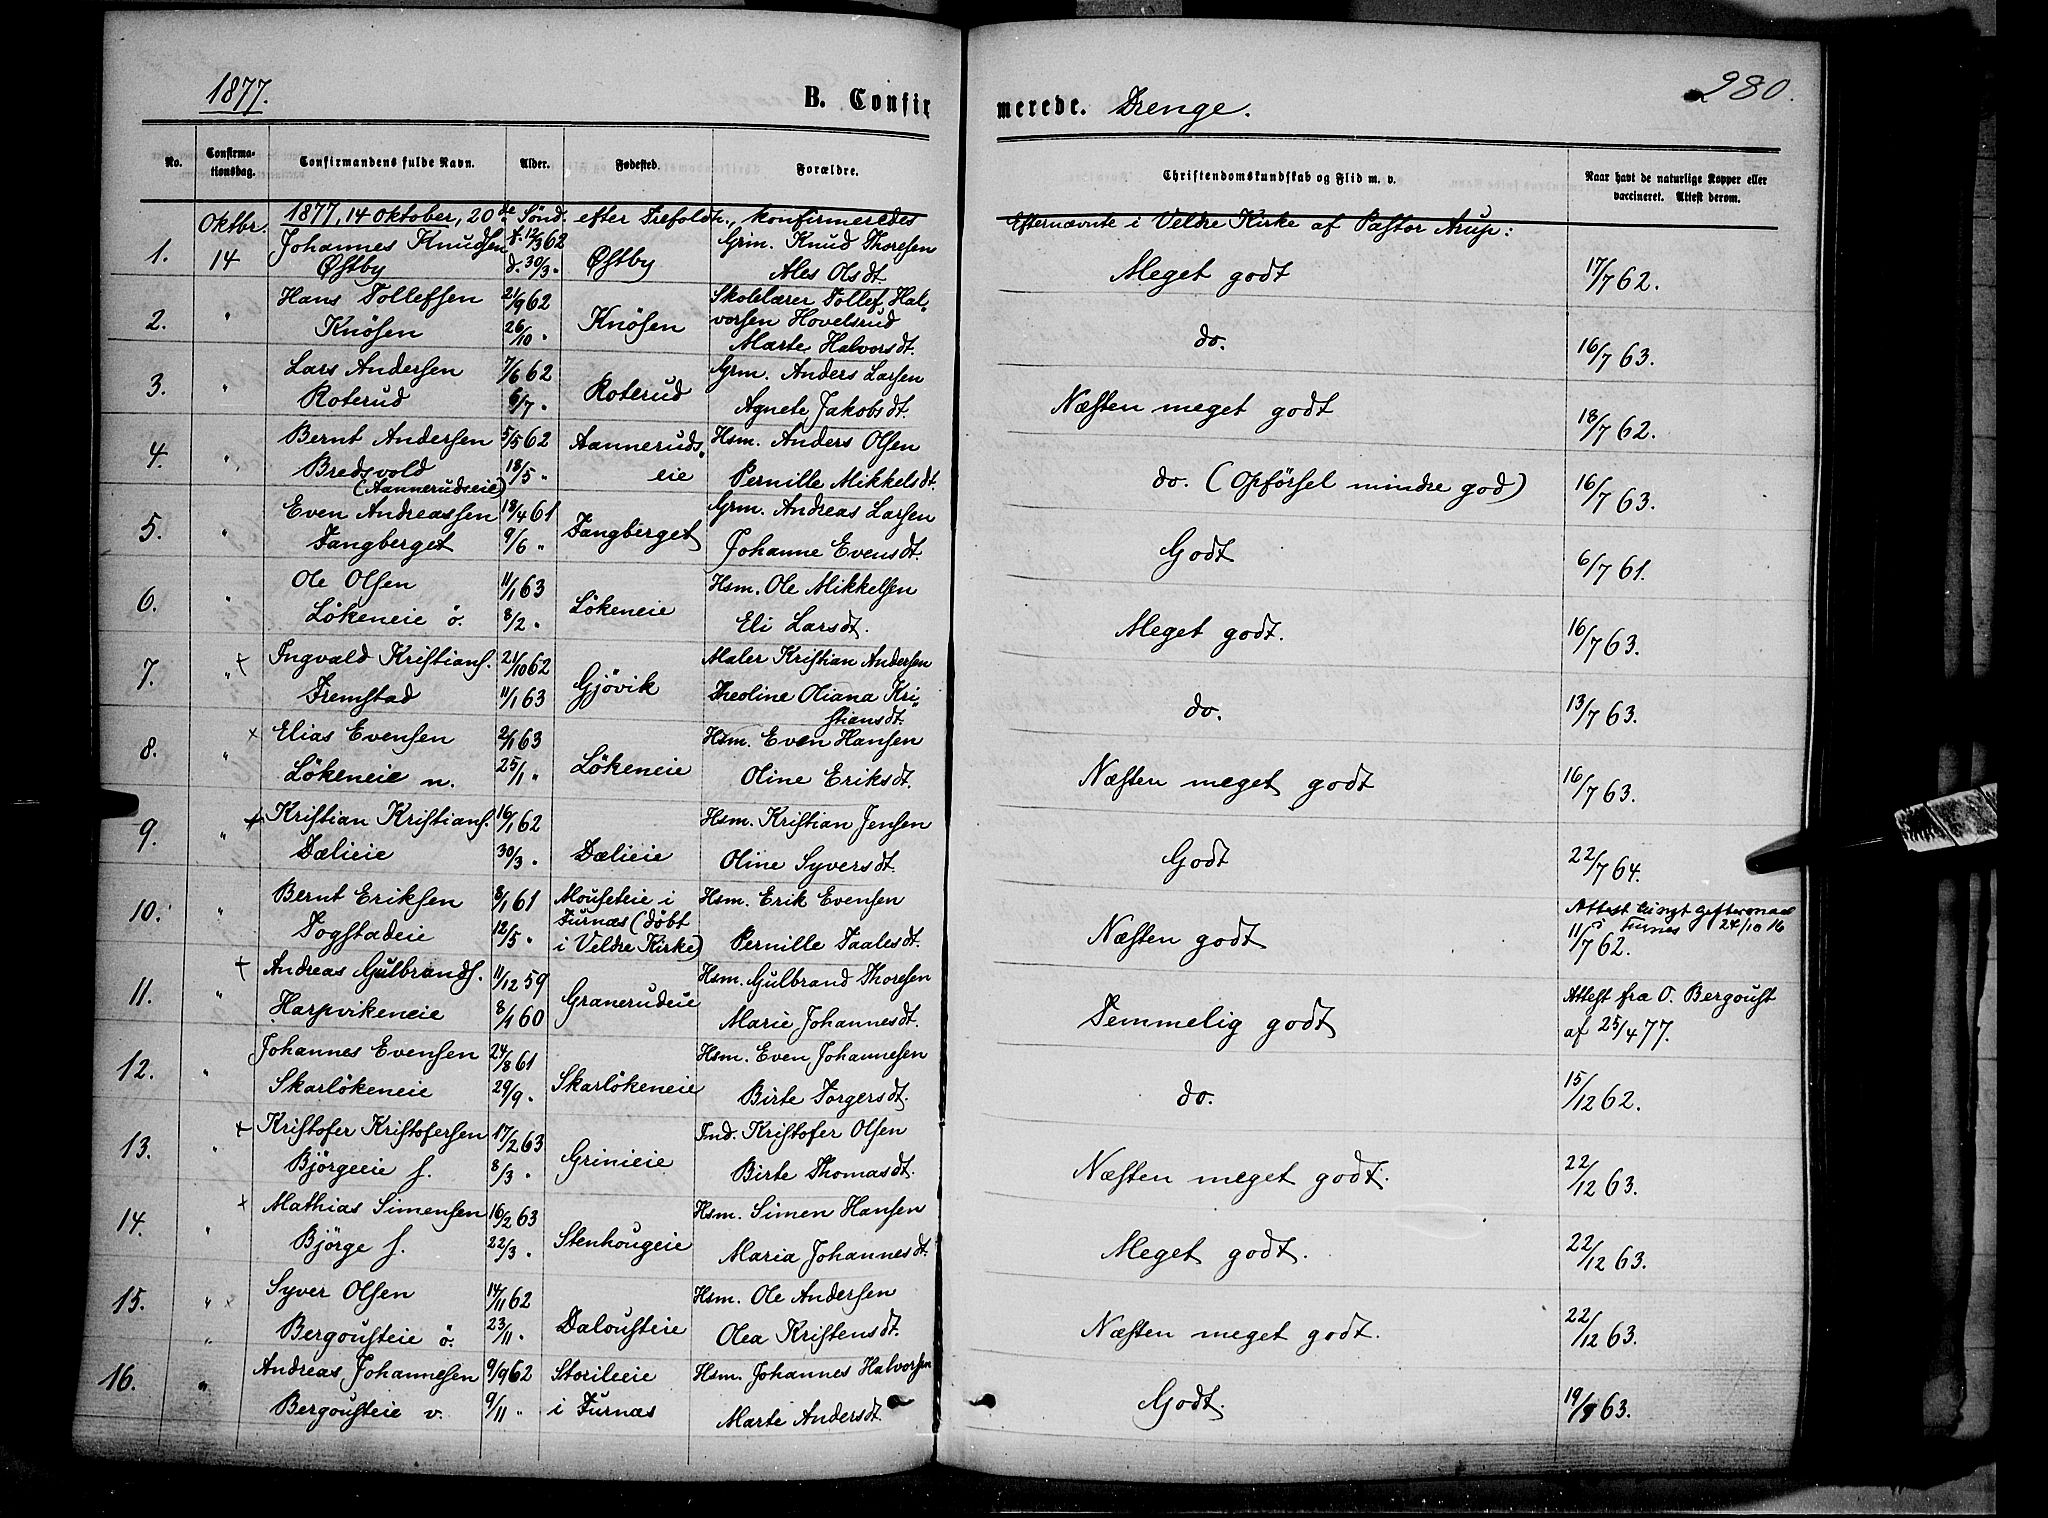 1877.
B. Confirmerede. Drenge.
280.
No. Confirma-tionsdag. Confirmandens fulde Navn. Alder. Fødested. Forældre. Christendomskundskab og Flid m. v. Naar havt de naturlige Kopper eller vaccineret. Attest derom.
Oktbr. 1877, 14 Oktober, 20de Sönd. efter Trefoldh., konfirmeredes Efternævnte i Veldre Kirke af Pastor Arup:
1. 14 Johannes Knudsen f. 12/3 62 Østby Grm. Knud Thoresen Meget godt 17/7 62.
Østby d. 30/3 " Ales Olsdt.
2. " Hans Tollefsen 21/9 62 Knösen Skolelærer Tollef Hal- do. 16/7 63.
Knösen 26/10 " vorsen Hovelsrud
Marte Halvorsdt.
3. " Lars Andersen 7/6 62 Roterud Grm. Anders Larsen Næsten meget godt 18/7 62.
Roterud 6/7 " Agnete Jakobsdt.
4. " Bernt Andersen 5/5 62 Aanneruds- Hsm. Anders Olsen do. (Opförsel mindre god) 16/7 63.
Bredsvold 18/5 " eie Pernille Mikkelsdt.
(Aannerudseie)
5. " Even Andreassen 18/4 61 Tangberget Grm. Andreas Larsen Godt 6/7 61.
Tangberget 9/6 " Johanne Evensdt.
6. " Ole Olsen 11/1 63 Lökeneie Hsm. Ole Mikkelsen Meget godt. 16/7 63.
Lökeneie ö. 8/2 " Eli Larsdt.
7. " + Ingvald Kristians. 21/10 62 Gjövik Maler Kristian Andersen do. 13/7 63.
Fremstad 11/1 63 Theoline Oliana Kri-
stiansdt.
8. " x Elias Evensen 2/1 63 Lökeneie Hsm. Even Hansen Næsten meget godt 16/7 63.
Lökeneie n. 25/1 " Oline Eriksdt.
9. " + Kristian Kristians. 16/1 62 Dælieie Hsm. Kristian Jensen Godt 22/7 64.
Dælieie 30/3 " Oline Syversdt.
10. " Bernt Eriksen 8/1 61 Mouseteie i Hsm. Erik Evensen Næsten godt Attest
Togstadeie 12/5 " Furnæs (döbt Pernille Paalesdt. i Furnes 24/10 16
i Veldre Kirke) 11/7 62.
11. " + Andreas Gulbrands. 11/12 59 Granerudeie Hsm. Gulbrand Thoresen Temmelig godt Attest fra O. Bergoust
Harpvikeneie 8/1 60 Marie Johannesdt. af 25/4 77.
12. " Johannes Evensen 24/8 61 Skarlökeneie Hsm. Even Johannesen do. 15/12 62.
Skarlökeneie 29/9 " Birte Torgersdt.
13. " + Kristofer Kristofersen 17/2 63 Grinieie Ind. Kristofer Olsen Næsten meget godt. 22/12 63.
Björgeeie s. 8/3 " Birte Thomasdt.
14. " x Mathias Simensen 16/2 63 Stenhougeie Hsm. Simen Hansen Meget godt. 22/12 63.
Björge s. 22/3 " Maria Johannesdt.
15. " x Syver Olsen 14/11 62 Dalousteie Hsm. Ole Andersen Næsten meget godt. 22/12 63.
" Bergousteie ö. 23/11 " Olea Kristensdt.
16. " Andreas Johannesen 9/9 62 Storileeie Hsm. Johannes Halvorsen Godt. 19/9 63.
Bergousteie v. 9/11 " i Furnæs Marte Andersdt.